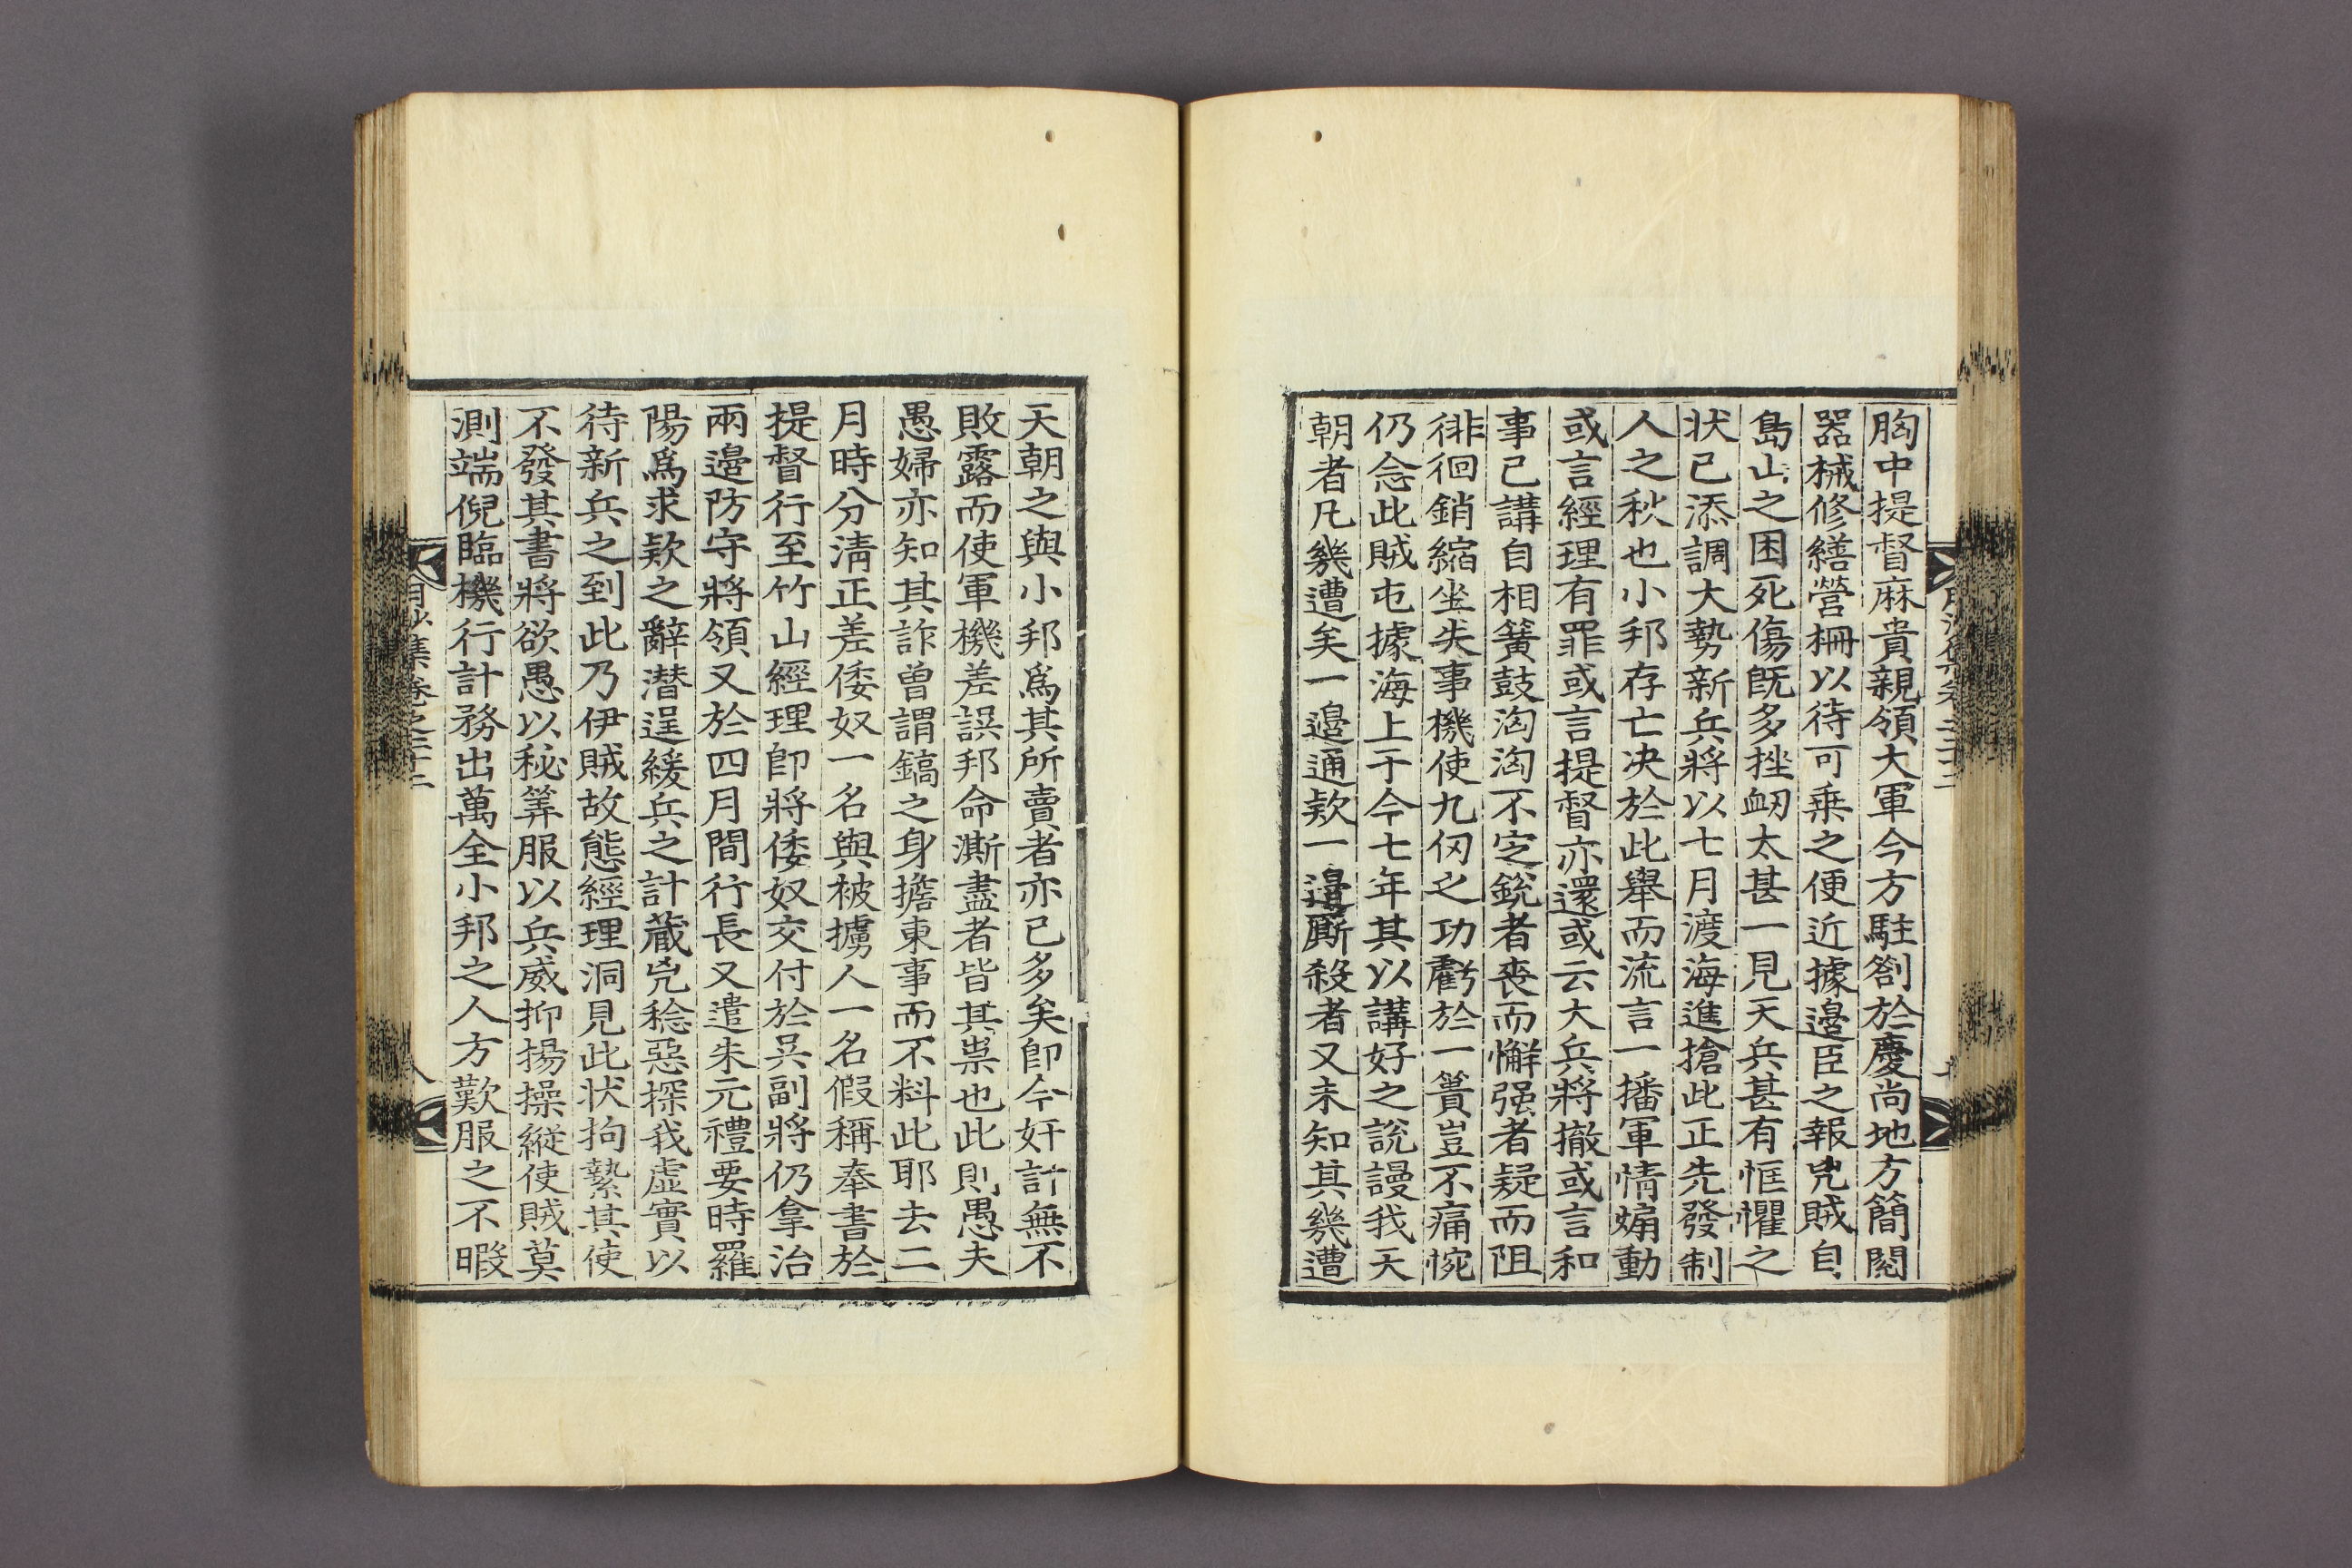 胸中提督麻貴親領大軍今方駐劄於慶尚地方簡閱
器械修繕營柵以待可乗之便近據邊臣之報兇賊自
島山之困死傷旣多挫衂太甚一見天兵甚有恇懼之
状已添調大勢新兵將以七月渡海進搶此正先發制
人之秋也小邦存亡决於此舉而流言一播軍情煽動
或言經理有罪或言提督亦還或云大兵將撤或言和
事已講自相簧鼓洶洶不定銳者喪而懈强者疑而阻
徘徊銷縮坐失事機使九仞之功虧於一簣豈不痛惋
仍念此賊屯據海上于今七年其以講好之說謾我天
朝者凡幾遭矣一邊通欵一邊厮殺者又未知其幾遭
天朝之與小邦爲其所賣者亦已多矣卽今奸計無不
敗露而使軍機差誤邦命澌盡者皆其祟也此則愚夫
愚婦亦知其詐曾謂鎬之身擔東事而不料此耶去二
月時分淸正差倭奴一名與被擄人一名假稱奉書於
提督行至竹山經理卽將倭奴交付於吳副將仍拿治
兩邊防守將領又於四月間行長又遣朱元禮要時羅
陽爲求欵之辭潛逞緩兵之計藏兇稔惡探我虛實以
待新兵之到此乃伊賊故態經理洞見此状拘縶其使
不發其書將欲愚以秘筭服以兵威抑揚操縱使賊莫
測端倪臨機行計務出萬全小邦之人方歎服之不暇
月沙集卷之二十二
八